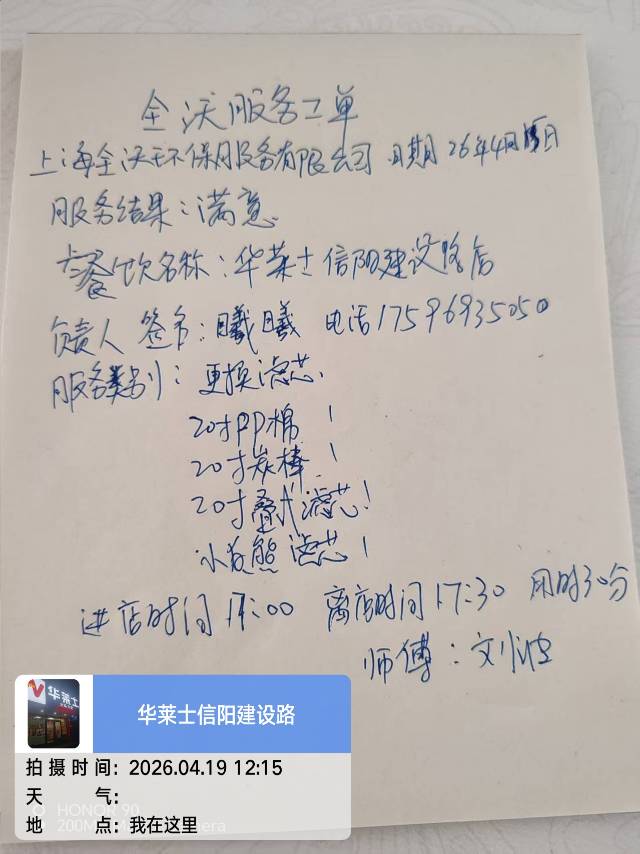 全沃服务工单
上海全沃环保服务有限公司 日期 26年4月15日
服务结果：满意
餐饮名称：华莱士信阳建设路店
负责人签名：曦曦 电话17596935050
服务类别：更换滤芯.
20寸PP棉 1
20寸炭棒 1
20寸叠式滤芯 1
小灰熊滤芯 1
进店时间 17:00 离店时间17:30 用时30分
师傅：刘波
华莱士
华莱士信阳建设路
拍摄时间：2026.04.19 12:15
天气：
地点：我在这里
HONOR 90